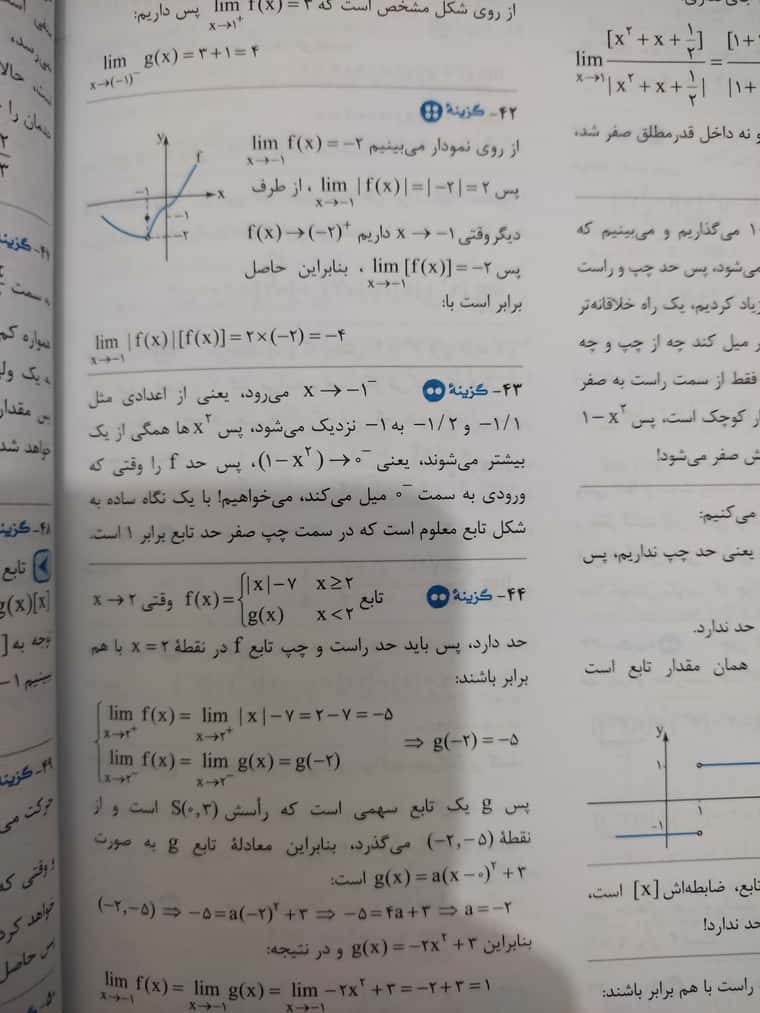 از روی شکل مشخص است که lim f(x) = ۳ پس داریم:
x→۱⁺
lim g(x) = ۳+۱ = ۴
x→(−۱)⁻
۴۲- گزینهٔ
از روی نمودار می‌بینیم lim f(x) = −۲
x→−۱
پس lim |f(x)| = |−۲| = ۲ ، از طرف
x→−۱
دیگر وقتی x → −۱ داریم f(x) → (−۲)⁺
پس lim [f(x)] = −۲ ، بنابراین حاصل
x→−۱
برابر است با:
lim |f(x)|[f(x)] = ۲×(−۲) = −۴
x→−۱
y
f
x
−۱
−۱
−۲
۴۳- گزینهٔ x → −۱⁻ می‌رود، یعنی از اعدادی مثل
−۱/۱ و −۱/۲ به −۱ نزدیک می‌شود، پس x² ها همگی از یک
بیشتر می‌شوند، یعنی (۱−x²) → ۰⁻، پس حد f را وقتی که
ورودی به سمت ۰⁻ میل می‌کند، می‌خواهیم! با یک نگاه ساده به
شکل تابع معلوم است که در سمت چپ صفر حد تابع برابر ۱ است.
۴۴- گزینهٔ تابع f(x) = { |x|−۷ x ≥ ۲ وقتی x → ۲
g(x) x < ۲
حد دارد، پس باید حد راست و چپ تابع f در نقطهٔ x = ۲ با هم
برابر باشند:
lim f(x) = lim |x|−۷ = ۲−۷ = −۵
x→۲⁺ x→۲⁺
⇒ g(−۲) = −۵
lim f(x) = lim g(x) = g(−۲)
x→۲⁻ x→۲⁻
پس g یک تابع سهمی است که رأسش S(۰,۳) است و از
نقطهٔ (−۲,−۵) می‌گذرد، بنابراین معادلهٔ تابع g به صورت
g(x) = a(x−۰)² + ۳ است:
(−۲,−۵) ⇒ −۵ = a(−۲)² + ۳ ⇒ −۵ = ۴a+۳ ⇒ a = −۲
بنابراین g(x) = −۲x² + ۳ و در نتیجه:
lim f(x) = lim g(x) = lim −۲x² + ۳ = −۲+۳ = ۱
x→−۱ x→−۱ x→−۱
lim [x² + x + ۱/۲] / |x² + x + ۱/۲| =
x→۱
و نه داخل قدرمطلق صفر شد،
می‌گذاریم و می‌بینیم که
می‌شود، پس حد چپ و راست
زیاد کردیم، یک راه خلاقانه‌تر
میل کند چه از چپ و چه
فقط از سمت راست به صفر
کوچک است، پس ۱−x²
صفر می‌شود!
می‌کنیم:
یعنی حد چپ نداریم، پس
حد ندارد.
همان مقدار تابع است
y
۱
۱
−۱
تابع، ضابطه‌اش [x] است،
حد ندارد!
راست با هم برابر باشند: